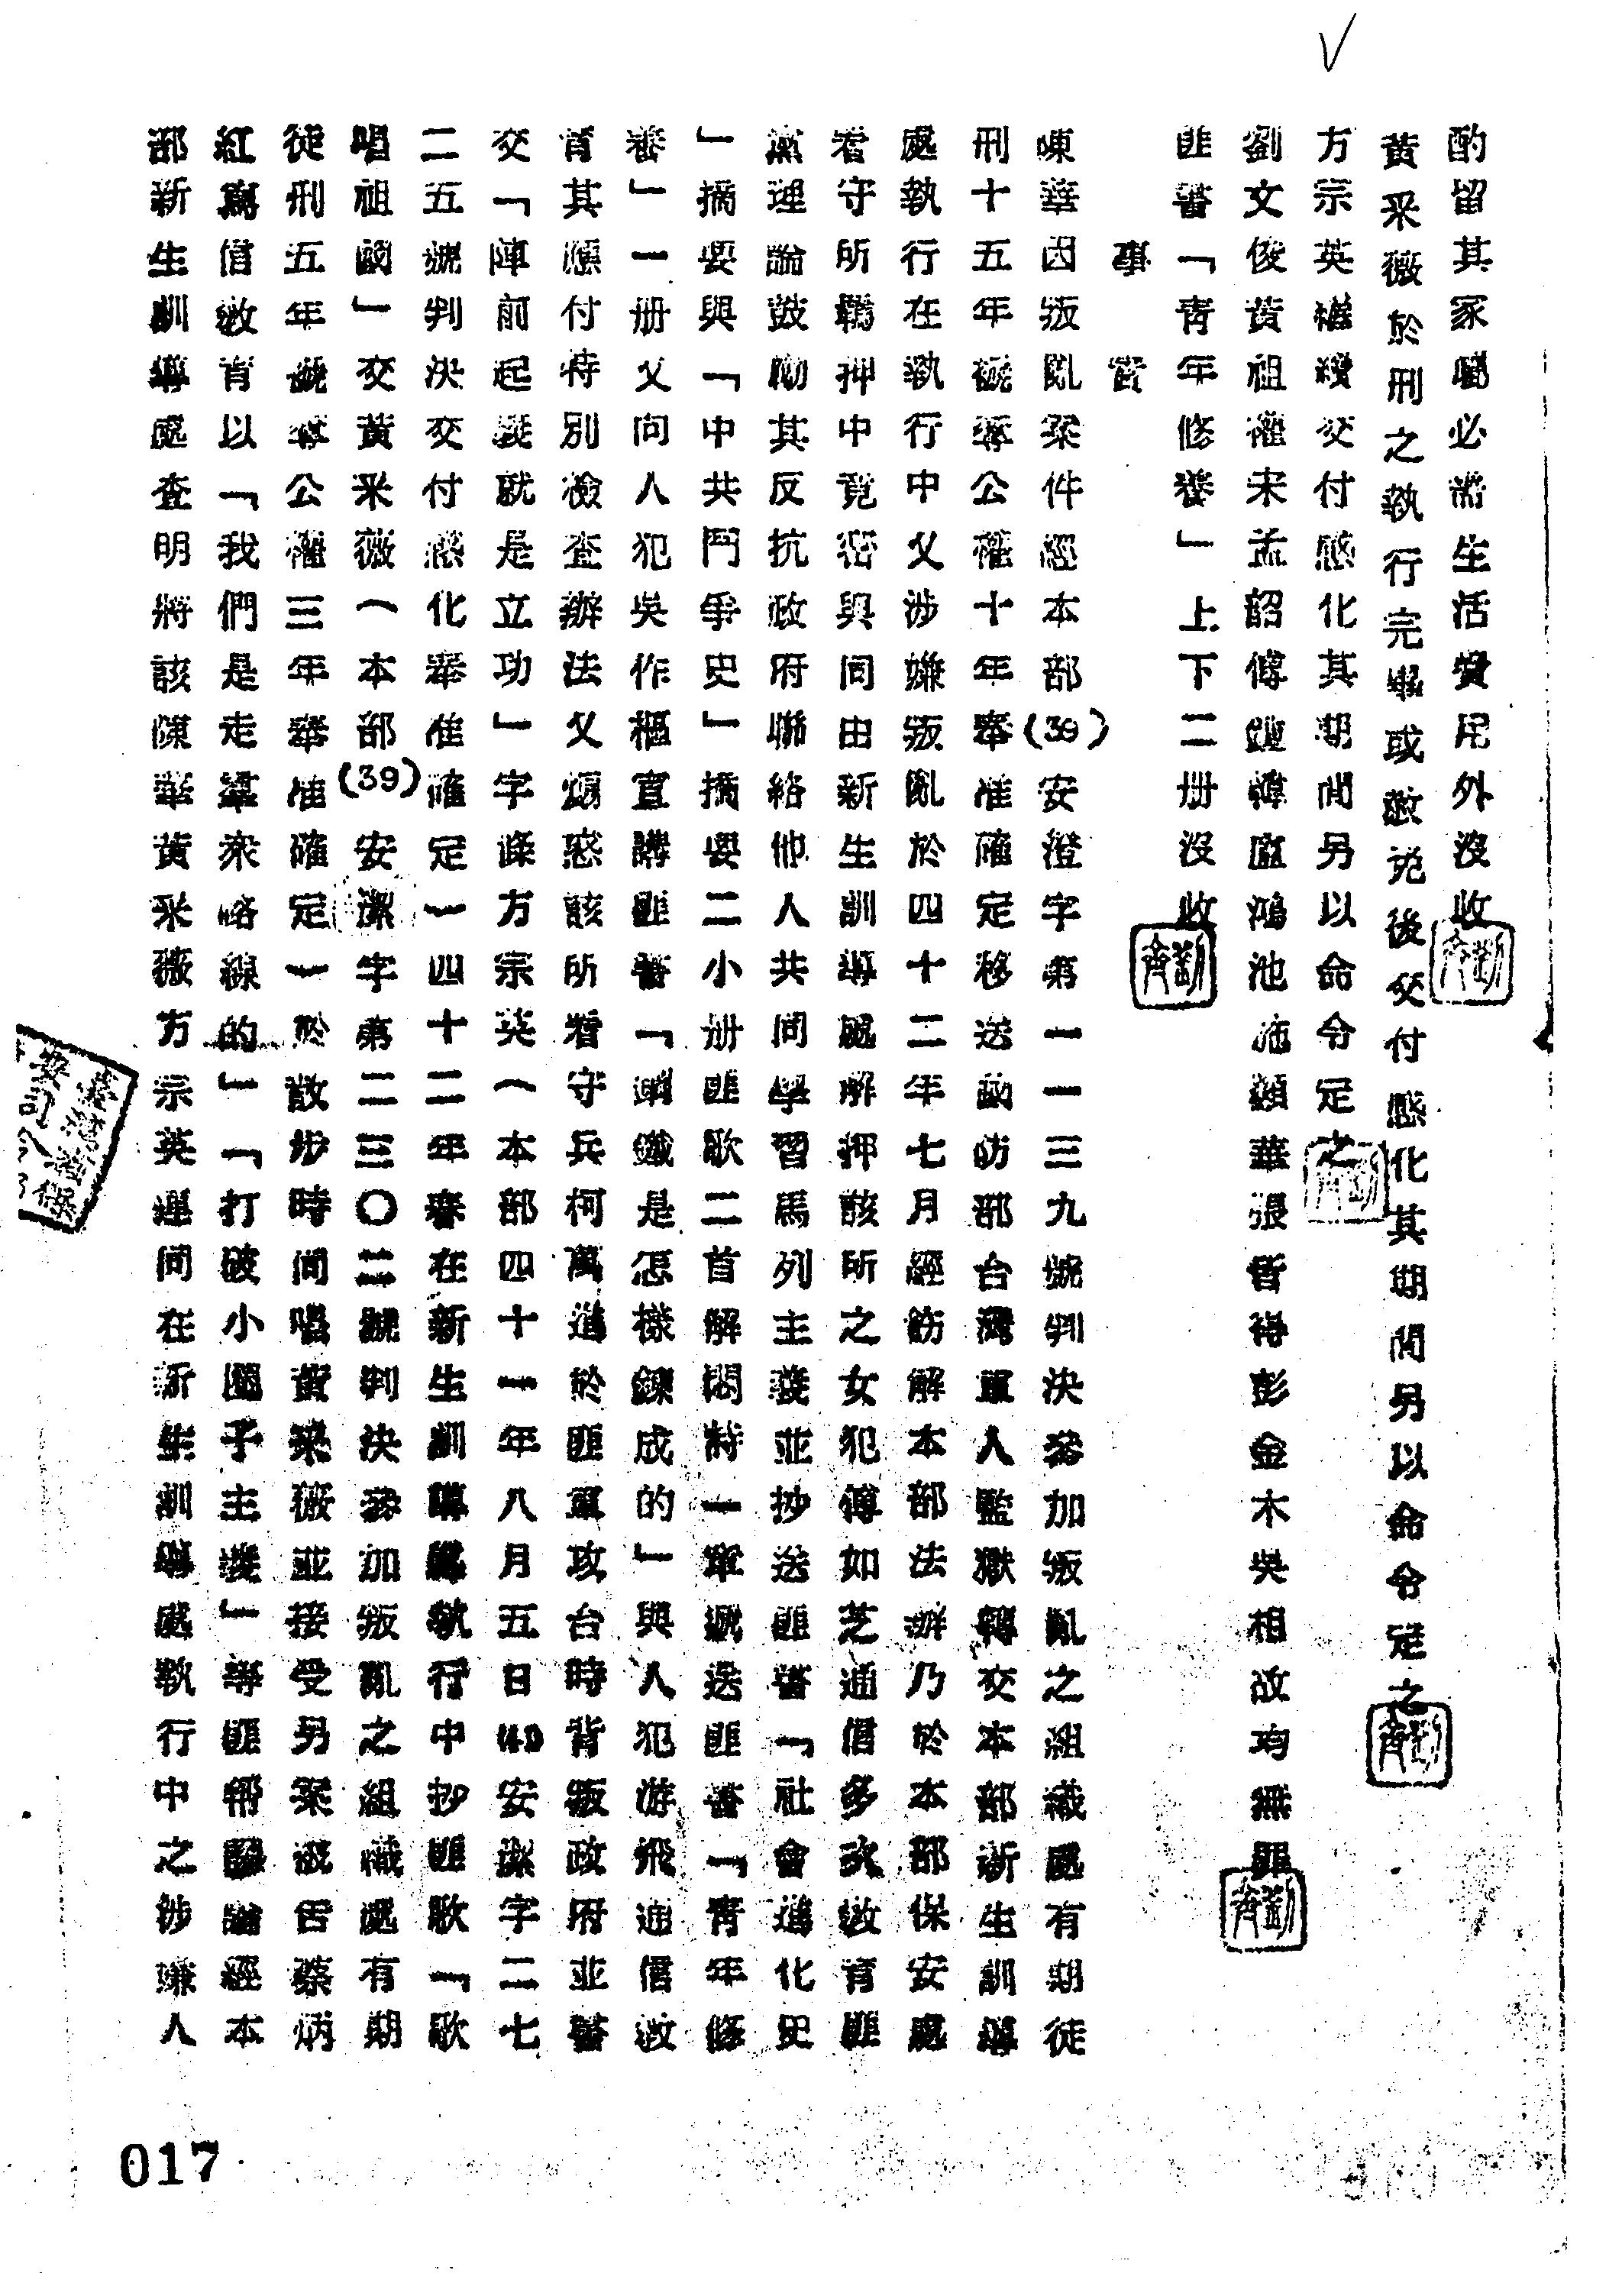 酌留其家屬必需生活費用外沒收
黃采薇於刑之執行完畢或赦免後交付感化其期間另以命令定之
方宗英犧續交付感化其期間另以命令定之
劉文俊黃祖權宋孟韶傅鍾韓盧鴻池施顯華張晉得彭金木吳相故均無罪
匪書「青年修養」上下二册沒收
事實
陳華因叛亂案件經本部(39)安澄字第一一三九號判決參加叛亂之組織處有期徒
刑十五年褫奪公權十年奉准確定移送國防部台灣軍人監獄轉交本部新生訓導
處執行在執行中又涉嫌叛亂於四十二年七月經飭解本部法辦乃於本部保安處
看守所羈押中竟密與同由新生訓導處解押該所之女犯傅如芝通信多次教育匪
黨理論鼓勵其反抗政府聯絡他人共同學習馬列主義並抄送匪書「社會進化史
」摘要與「中共鬥爭史」摘要二小册匪歌二首解悶特一軍號送匪書「青年修
養」一册又向人犯吳作樞宣講匪書「鋼鐵是怎樣鍊成的」與人犯游飛通信教
育其應付特別檢查辦法又煽惑該所看守兵柯萬進於匪軍攻台時背叛政府並書
交「陣前起義就是立功」字條方宗英(本部四十一年八月五日(41)安潔字二七
二五號判決交付感化奉准確定一四十二年春在新生訓導處執行中抄匪歌「歌
唱祖國」交黃采薇(本部(39)安潔字第二三〇二號判決參加叛亂之組織處有期
徒刑五年褫奪公權三年奉准確定一於散步時間唱黃采薇並接受另案被告蔡炳
紅寫信教育以「我們是走羣衆路線的」「打破小圈子主義」等匪幫謬論經本
部新生訓導處查明將該陳華黃采薇方宗英連同在新生訓導處執行中之涉嫌人
017